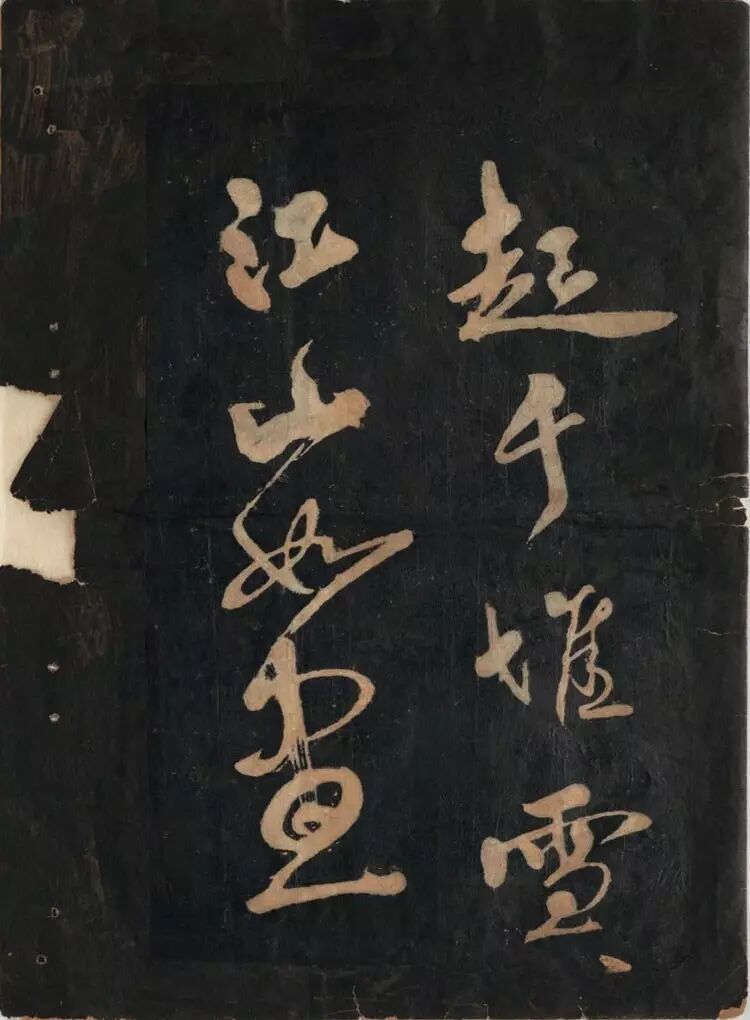 起千堆雪
江山如畫